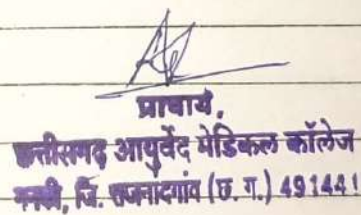 प्राचार्य,
छत्तीसगढ़ आयुर्वेद मेडिकल कॉलेज
जि. राजनांदगांव (छ. ग.) 491441